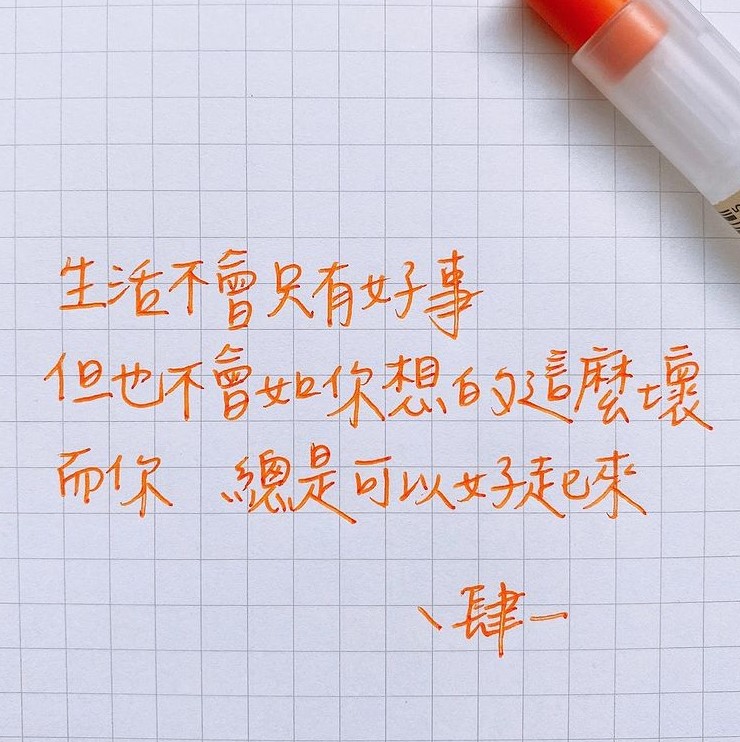 生活不會只有好事
但也不會如你想的這麼壞
而你 總是可以好起來
、肆一